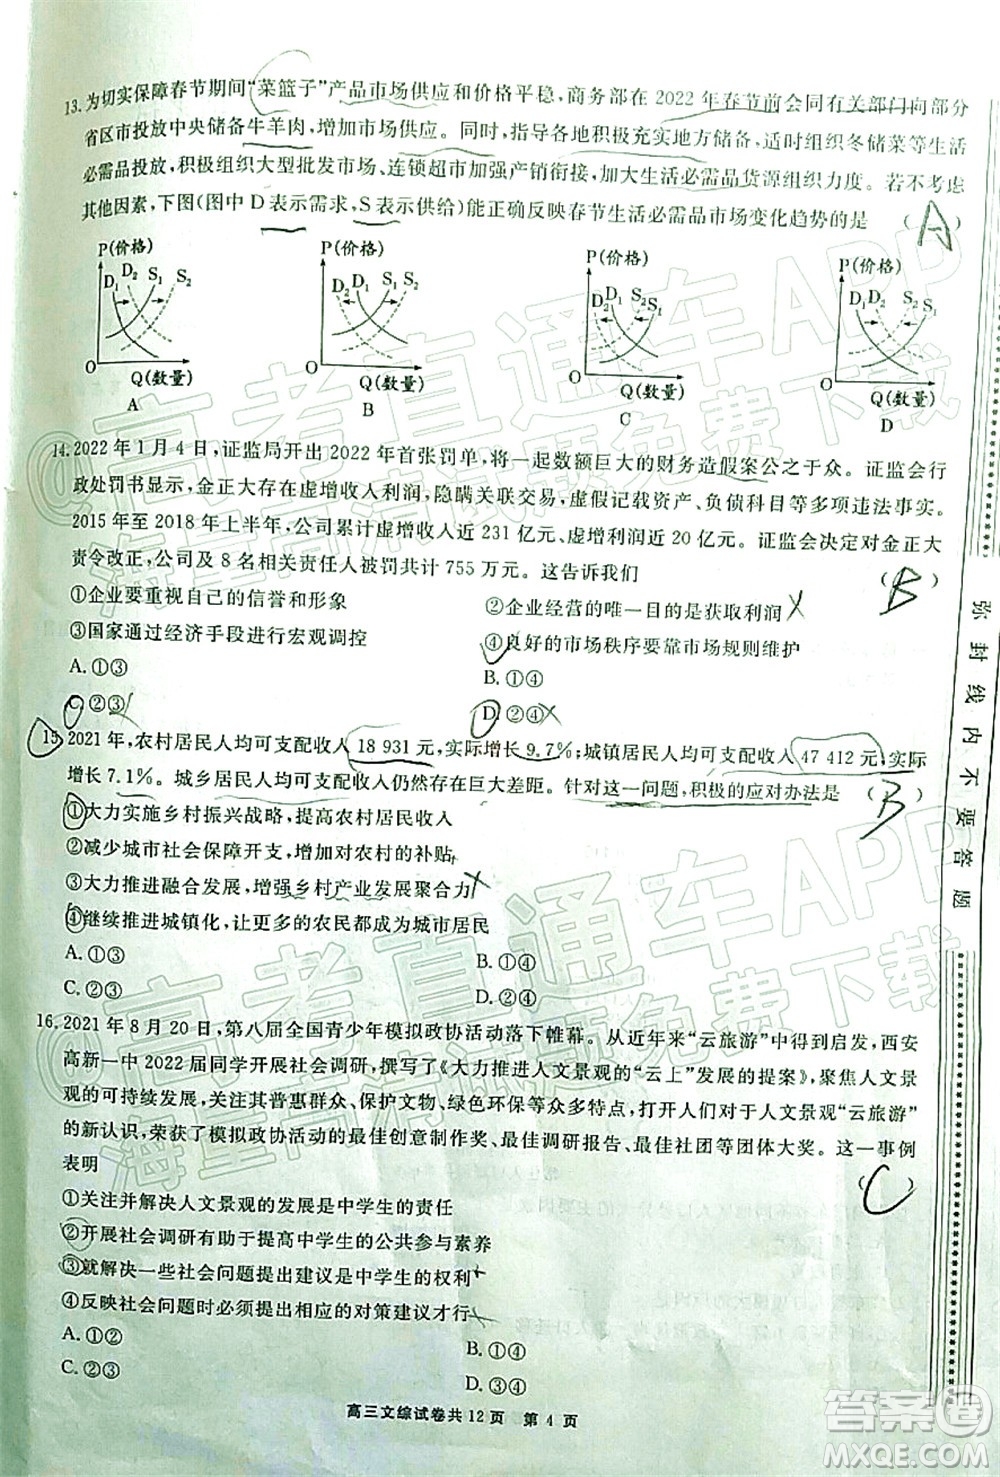 13. 为切实保障春节期间“菜篮子”产品市场供应和价格平稳,商务部在 2022 年春节前会同有关部门向部分
省区市投放中央储备牛羊肉,增加市场供应。同时,指导各地积极充实地方储备,适时组织冬储菜等生活
必需品投放,积极组织大型批发市场、连锁超市加强产销衔接,加大生活必需品货源组织力度。若不考虑
其他因素,下图(图中 D 表示需求,S 表示供给)能正确反映春节生活必需品市场变化趋势的是 ( A )
P(价格) P(价格) P(价格) P(价格)
D₁ D₂ S₁ S₂ D₂ D₁ S₁ S₂ D₂ D₁ S₂ S₁ D₁ D₂ S₂ S₁
O O O O
Q(数量) Q(数量) Q(数量) Q(数量)
A B C D
14. 2022 年 1 月 4 日,证监局开出 2022 年首张罚单,将一起数额巨大的财务造假案公之于众。证监会行
政处罚书显示,金正大存在虚增收入利润,隐瞒关联交易,虚假记载资产、负债科目等多项违法事实。
2015 年至 2018 年上半年,公司累计虚增收入近 231 亿元、虚增利润近 20 亿元。证监会决定对金正大
责令改正,公司及 8 名相关责任人被罚共计 755 万元。这告诉我们 ( B )
①企业要重视自己的信誉和形象 ②企业经营的唯一目的是获取利润
③国家通过经济手段进行宏观调控 ④良好的市场秩序要靠市场规则维护
A. ①③ B. ①④
C. ②③ D. ②④
15. 2021 年,农村居民人均可支配收入 18 931 元,实际增长 9.7%;城镇居民人均可支配收入 47 412 元,实际
增长 7.1%。城乡居民人均可支配收入仍然存在巨大差距。针对这一问题,积极的应对办法是 ( B )
①大力实施乡村振兴战略,提高农村居民收入
②减少城市社会保障开支,增加对农村的补贴
③大力推进融合发展,增强乡村产业发展聚合力
④继续推进城镇化,让更多的农民都成为城市居民
A. ①③ B. ①④
C. ②③ D. ②④
16. 2021 年 8 月 20 日,第八届全国青少年模拟政协活动落下帷幕。从近年来“云旅游”中得到启发,西安
高新一中 2022 届同学开展社会调研,撰写了《大力推进人文景观的“云上”发展的提案》,聚焦人文景
观的可持续发展,关注其普惠群众、保护文物、绿色环保等众多特点,打开人们对于人文景观“云旅游”
的新认识,荣获了模拟政协活动的最佳创意制作奖、最佳调研报告、最佳社团等团体大奖。这一事例
表明 ( C )
①关注并解决人文景观的发展是中学生的责任
②开展社会调研有助于提高中学生的公共参与素养
③就解决一些社会问题提出建议是中学生的权利
④反映社会问题时必须提出相应的对策建议才行
A. ①② B. ①④
C. ②③ D. ③④
高三文综试卷共 12 页 第 4 页
弥封线内不要答题
@高考直通车APP
海量高清试题免费下载
@高考直通车APP
海量高清试题免费下载
答案圈
MXQE.COM